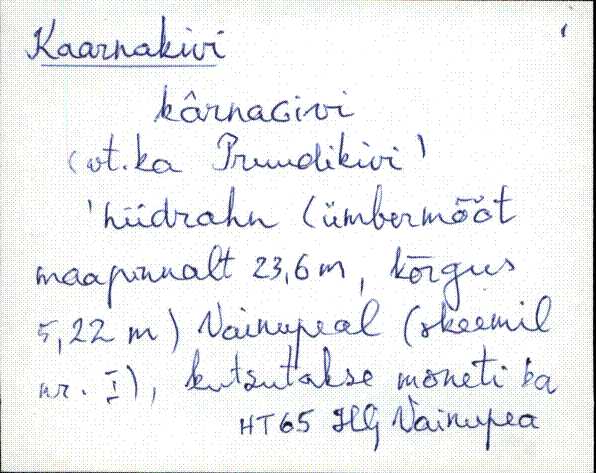 Kaarnakivi
kârnaGivi
(vt.ka Pruudikivi)
'hiidrahn (ümbermõõt
maapinnalt 23,6 m, kõrgus
5,22 m) Vainupeal (skeemil
nr. I), kutsutakse moneti ka
HT65 Vainupea